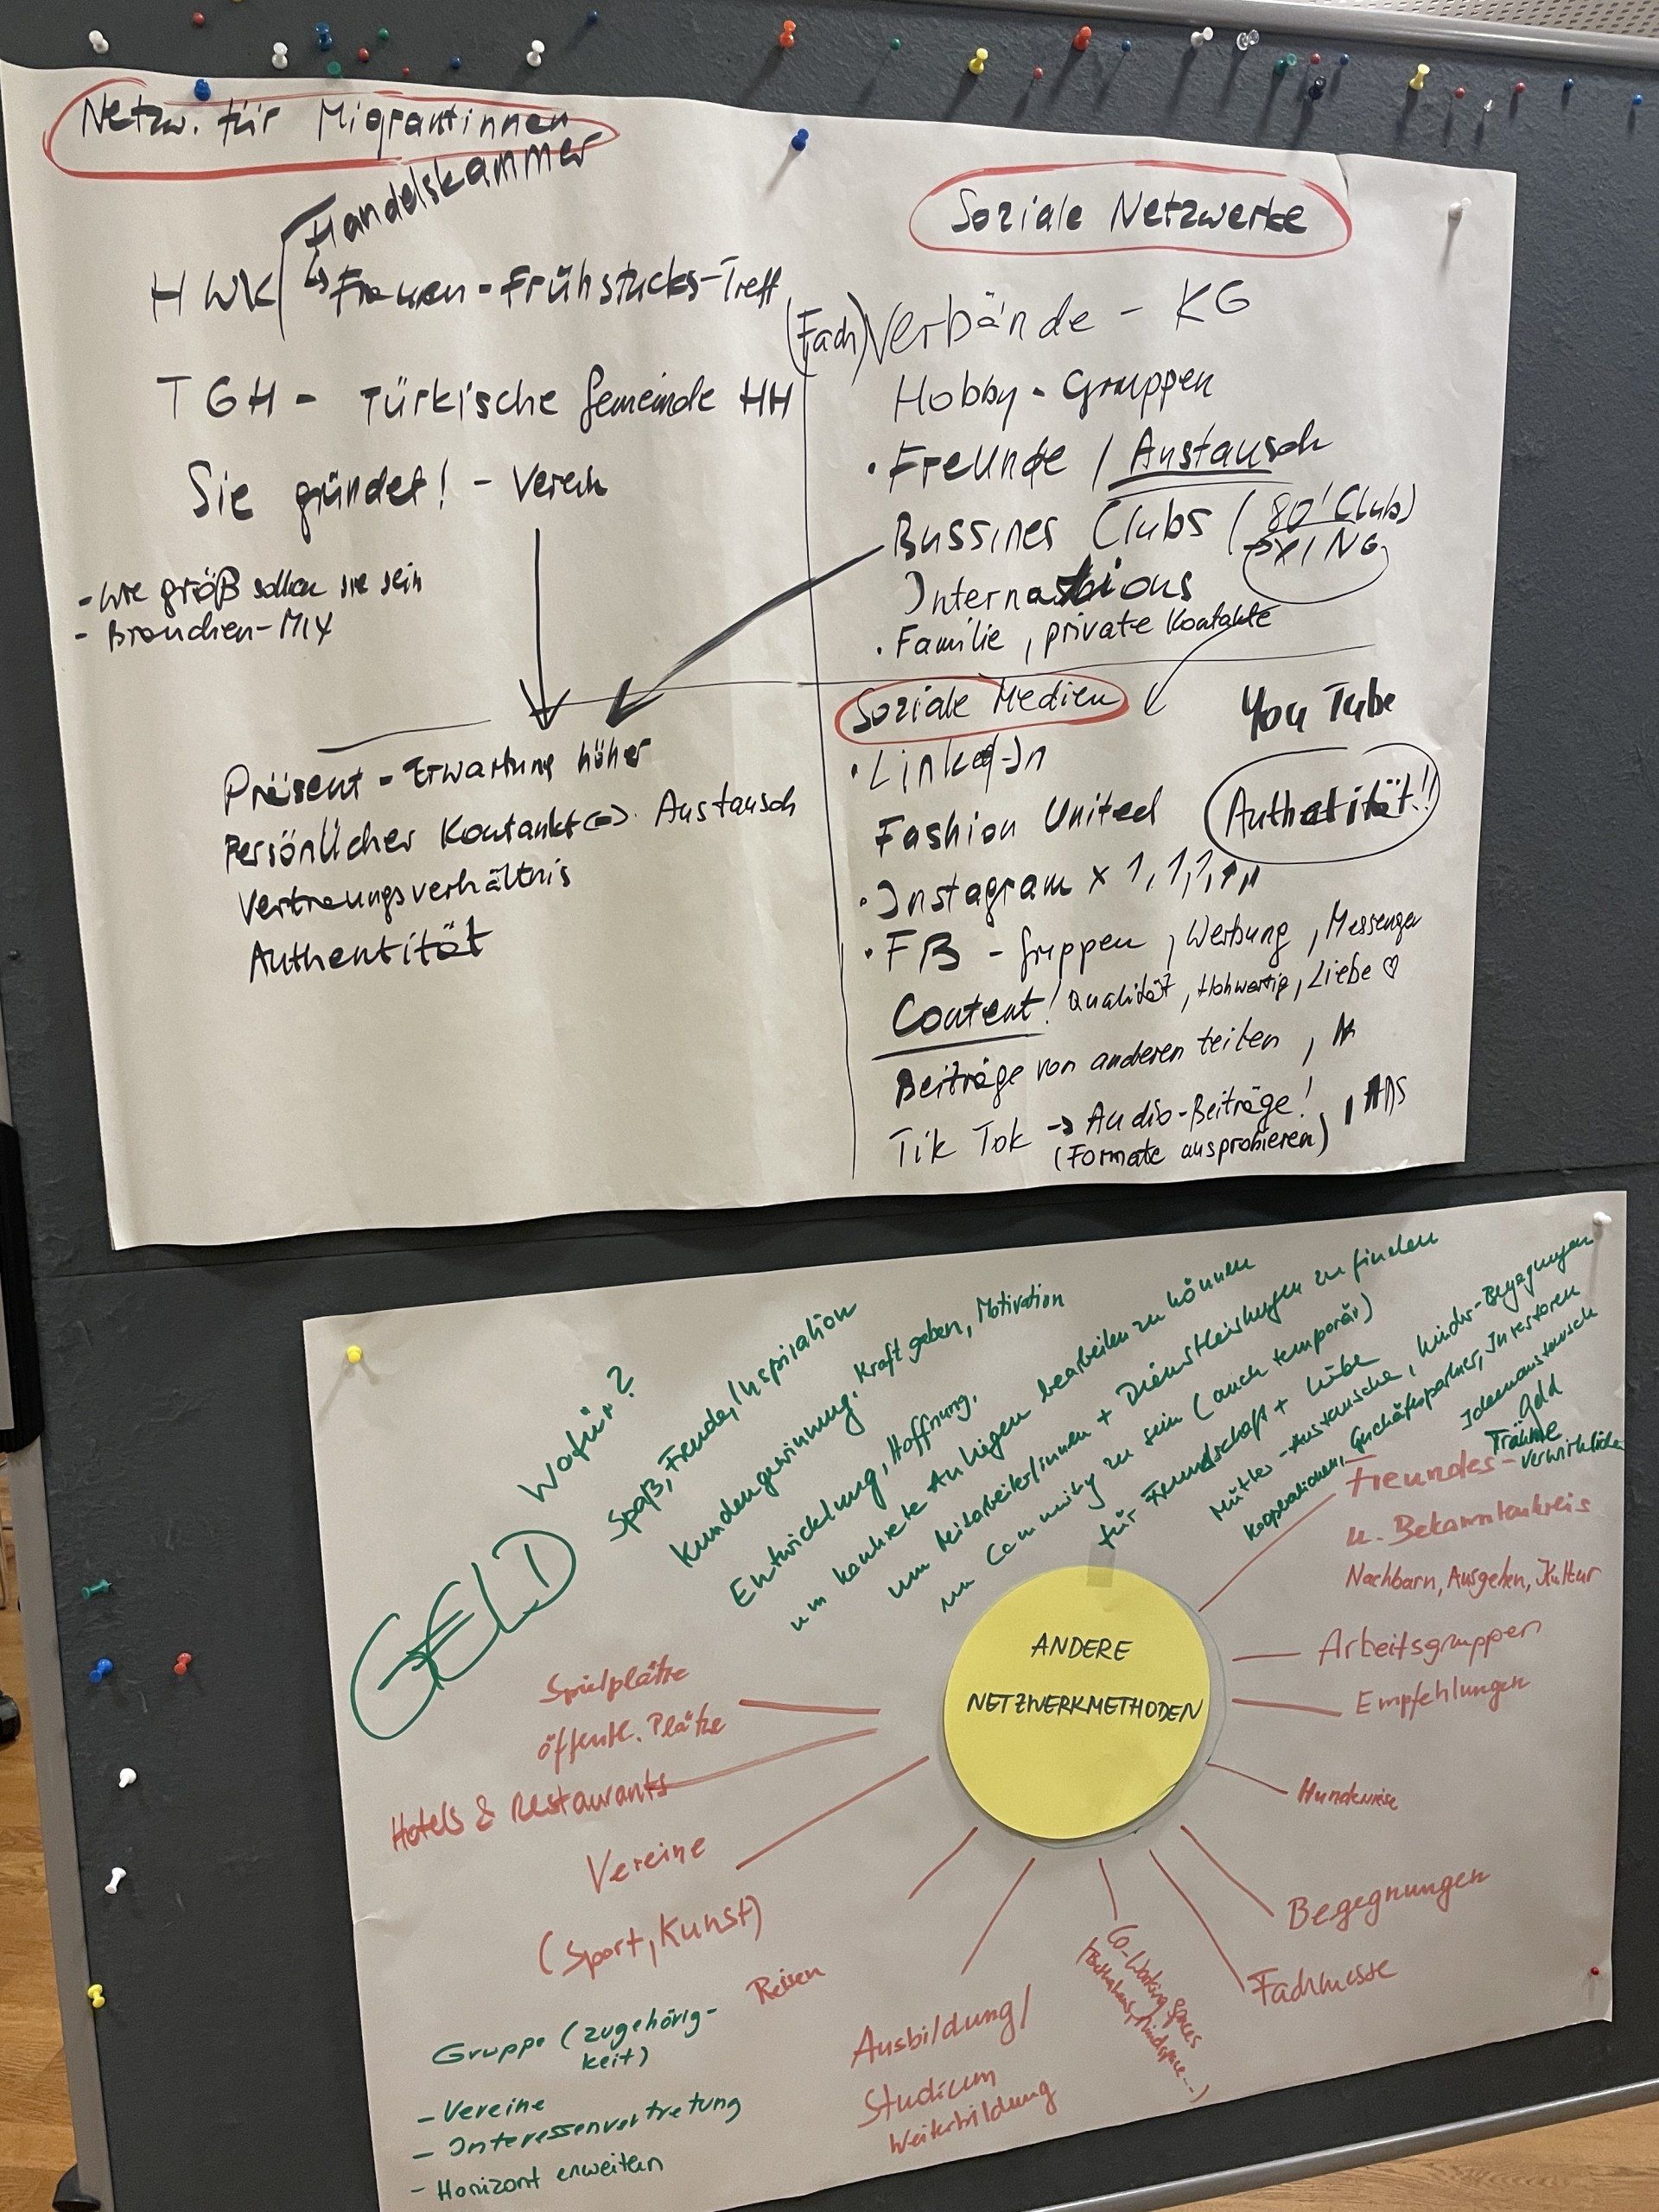 Netzw. für Migrantinnen
Handelskammer
HWK
↳ Frauen-Frühstücks-Treff
TGH - Türkische Gemeinde HH
Sie gründet! - Verein
- wie größ sollen sie sein
- Branchen-MIX
Präsent - Erwartung höher
Persönlicher Kontankt Austausch
Vertrauungsverhältnis
Authentität
Soziale Netzwerke
(Fach) Verbände - KG
Hobby-Gruppen
• Freunde / Austausch
Bussines Clubs (80' Club)
→ XING
Internations
• Familie, private Kontakte
Soziale Medien
You Tube
• Linked-In
Fashion United
Authetität!!
• Instagram x 1, 1, 1,
• FB - Gruppen, Werbung, Messenger
Content! Qualität, Hohwertig, Liebe ♡
Beiträge von anderen teilen,
Tik Tok → Audio-Beiträge!, ADS
(Formate ausprobieren)
Wofür?
GELD
Spaß, Freude, Inspiration
Kundengewinnung, Kraft geben, Motivation
Entwicklung, Hoffnung,
um konkrete Anliegen bearbeiten zu können
um Mitarbeiter/innen + Dienstleistungen zu finden
um Community zu sein (auch temporär)
für Freundschaft + Liebe
Mütter-Austausche, Kinder-Begegnungen
Kooperationen, Geschäftspartner, Investoren
Ideenaustausch
Geld
Träume
verwirklichen
ANDERE
NETZWERKMETHODEN
Freundes-
u. Bekanntenkreis
Nachbarn, Ausgehen, Kultur
Arbeitsgruppen
Empfehlungen
Hundewiese
Begegnungen
Fachmesse
Co-Working Spaces
Mindspace...)
Ausbildung/
Studium
Weiterbildung
Reisen
Spielplätze
öffentl. Plätze
Hotels & Restaurants
Vereine
(Sport, Kunst)
Gruppe (zugehörig-
keit)
- Vereine
- Interessenvertretung
- Horizont erweitern